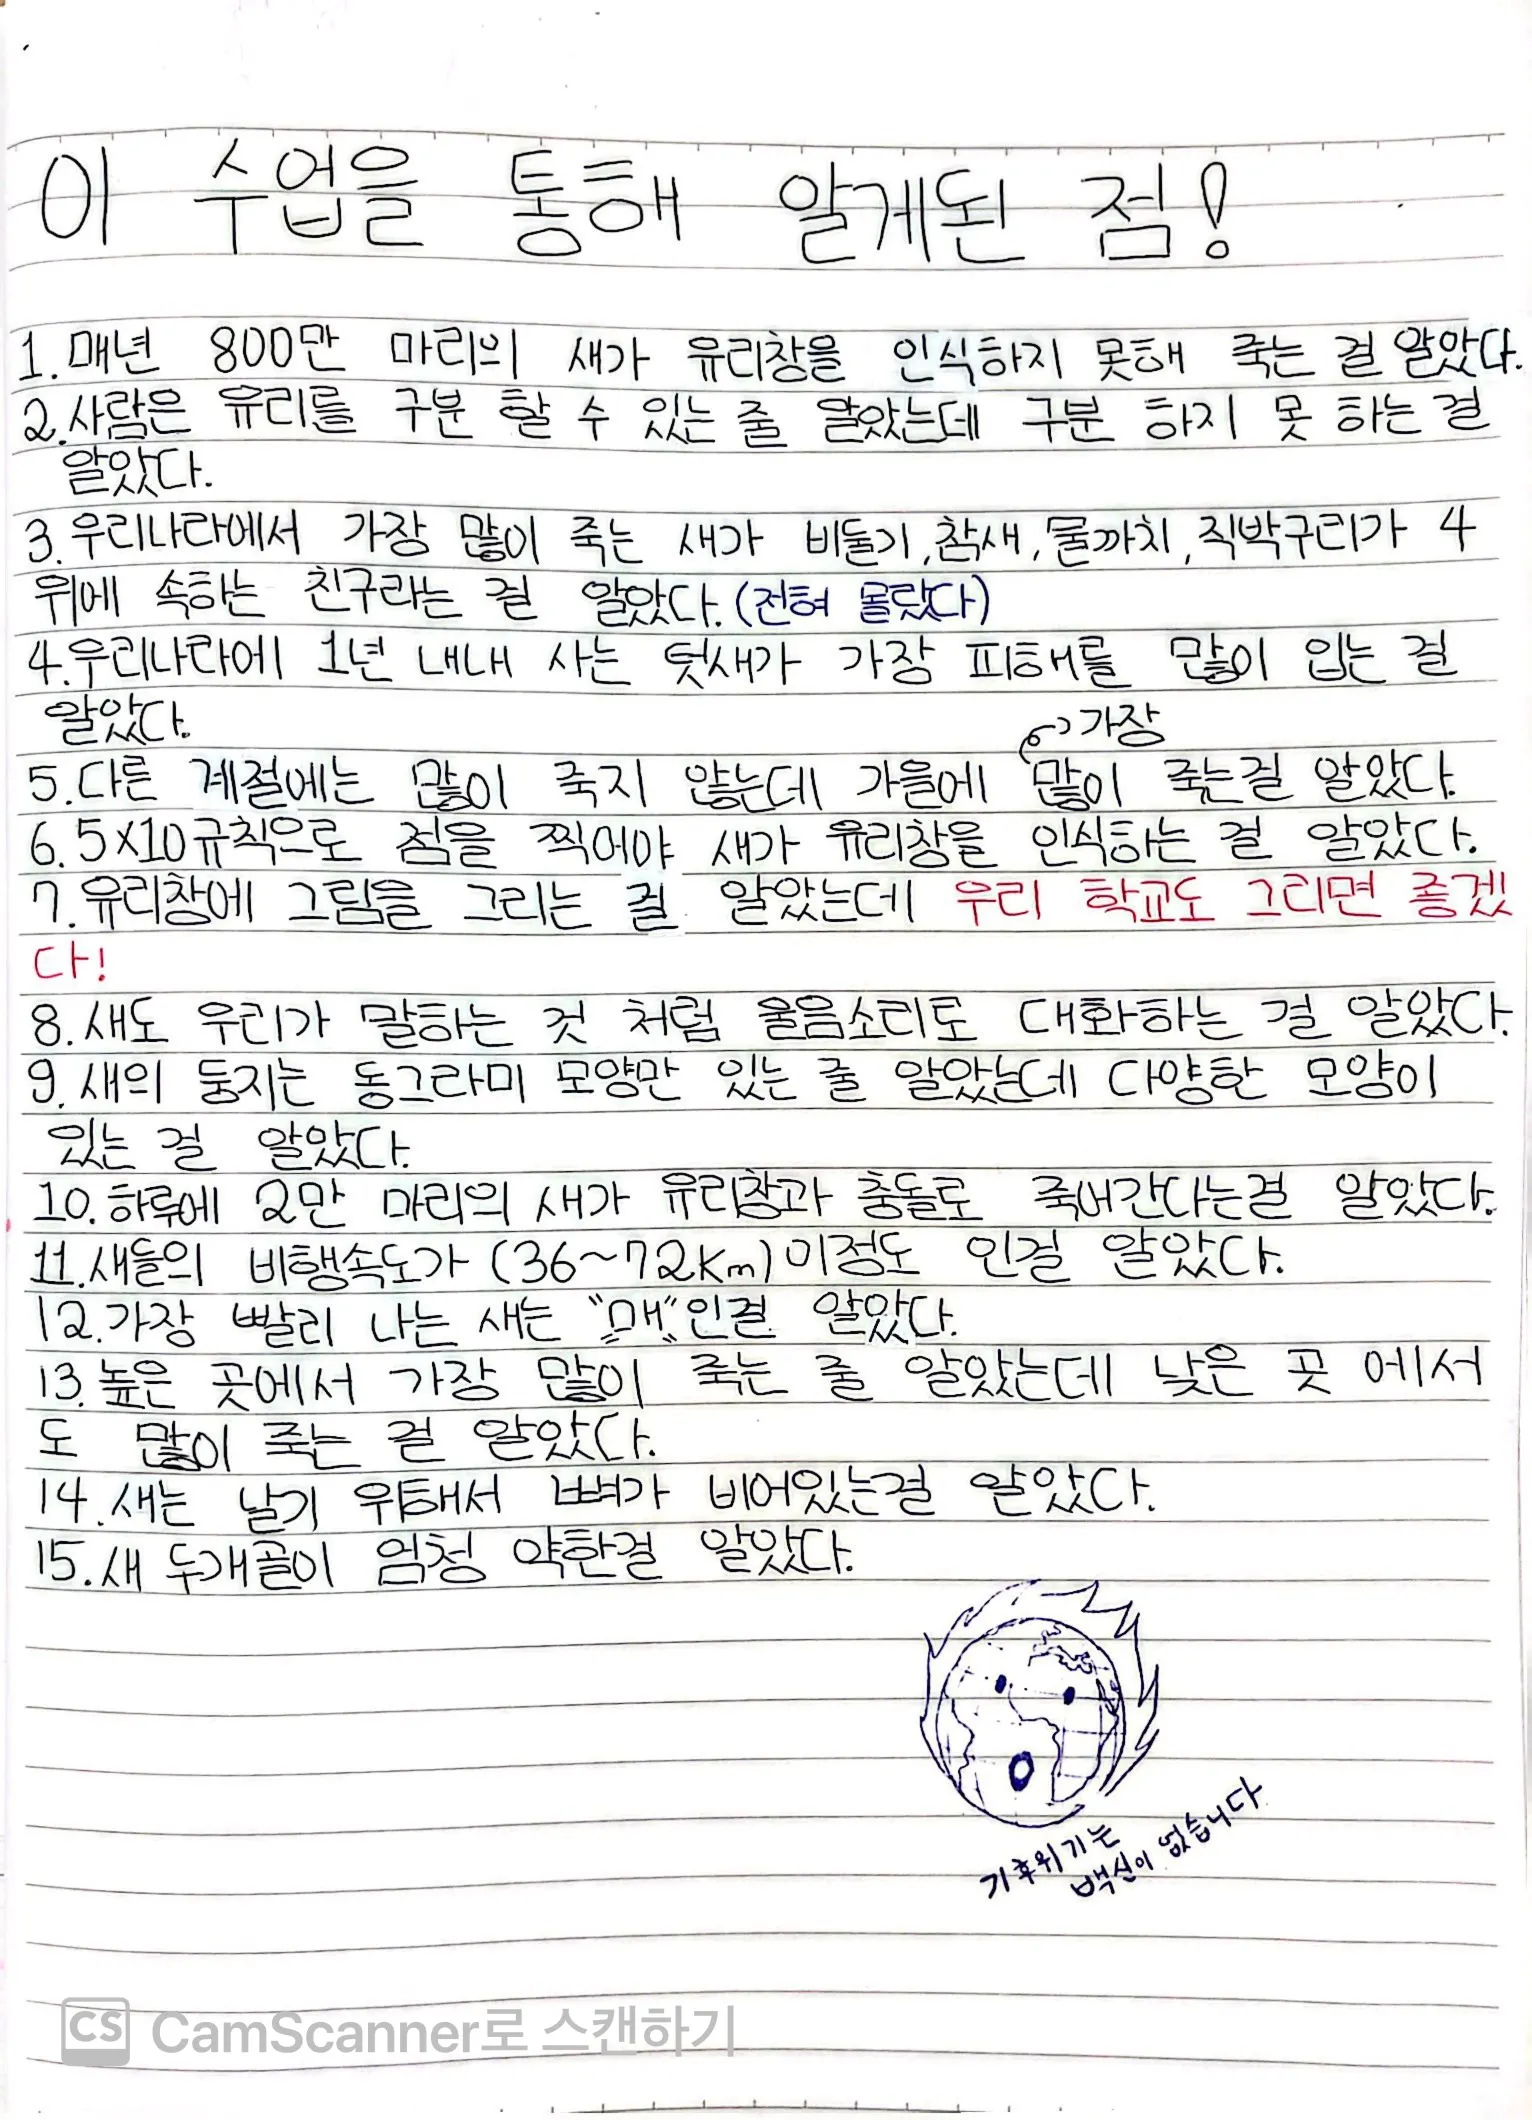 이 수업을 통해 알게된 점!
1. 매년 800만 마리의 새가 유리창을 인식하지 못해 죽는 걸 알았다.
2. 사람은 유리를 구분 할 수 있는 줄 알았는데 구분 하지 못 하는 걸
알았다.
3. 우리나라에서 가장 많이 죽는 새가 비둘기, 참새, 물까치, 직박구리가 4
위에 속하는 친구라는 걸 알았다. (전혀 몰랐다)
4. 우리나라에 1년 내내 사는 텃새가 가장 피해를 많이 입는 걸
알았다.
가장
5. 다른 계절에는 많이 죽지 않는데 가을에 많이 죽는걸 알았다.
6. 5×10규칙으로 점을 찍어야 새가 유리창을 인식하는 걸 알았다.
7. 유리창에 그림을 그리는 걸 알았는데 우리 학교도 그리면 좋겠
다!
8. 새도 우리가 말하는 것 처럼 울음소리로 대화하는 걸 알았다.
9. 새의 둥지는 동그라미 모양만 있는 줄 알았는데 다양한 모양이
있는 걸 알았다.
10. 하루에 2만 마리의 새가 유리창과 충돌로 죽어간다는걸 알았다.
11. 새들의 비행속도가 (36~72Km)이정도 인걸 알았다.
12. 가장 빨리 나는 새는 "매"인걸 알았다.
13. 높은 곳에서 가장 많이 죽는 줄 알았는데 낮은 곳 에서
도 많이 죽는 걸 알았다.
14. 새는 날기 위해서 뼈가 비어있는걸 알았다.
15. 새 두개골이 엄청 약한걸 알았다.
기후위기는
백신이 없습니다
CS CamScanner로 스캔하기